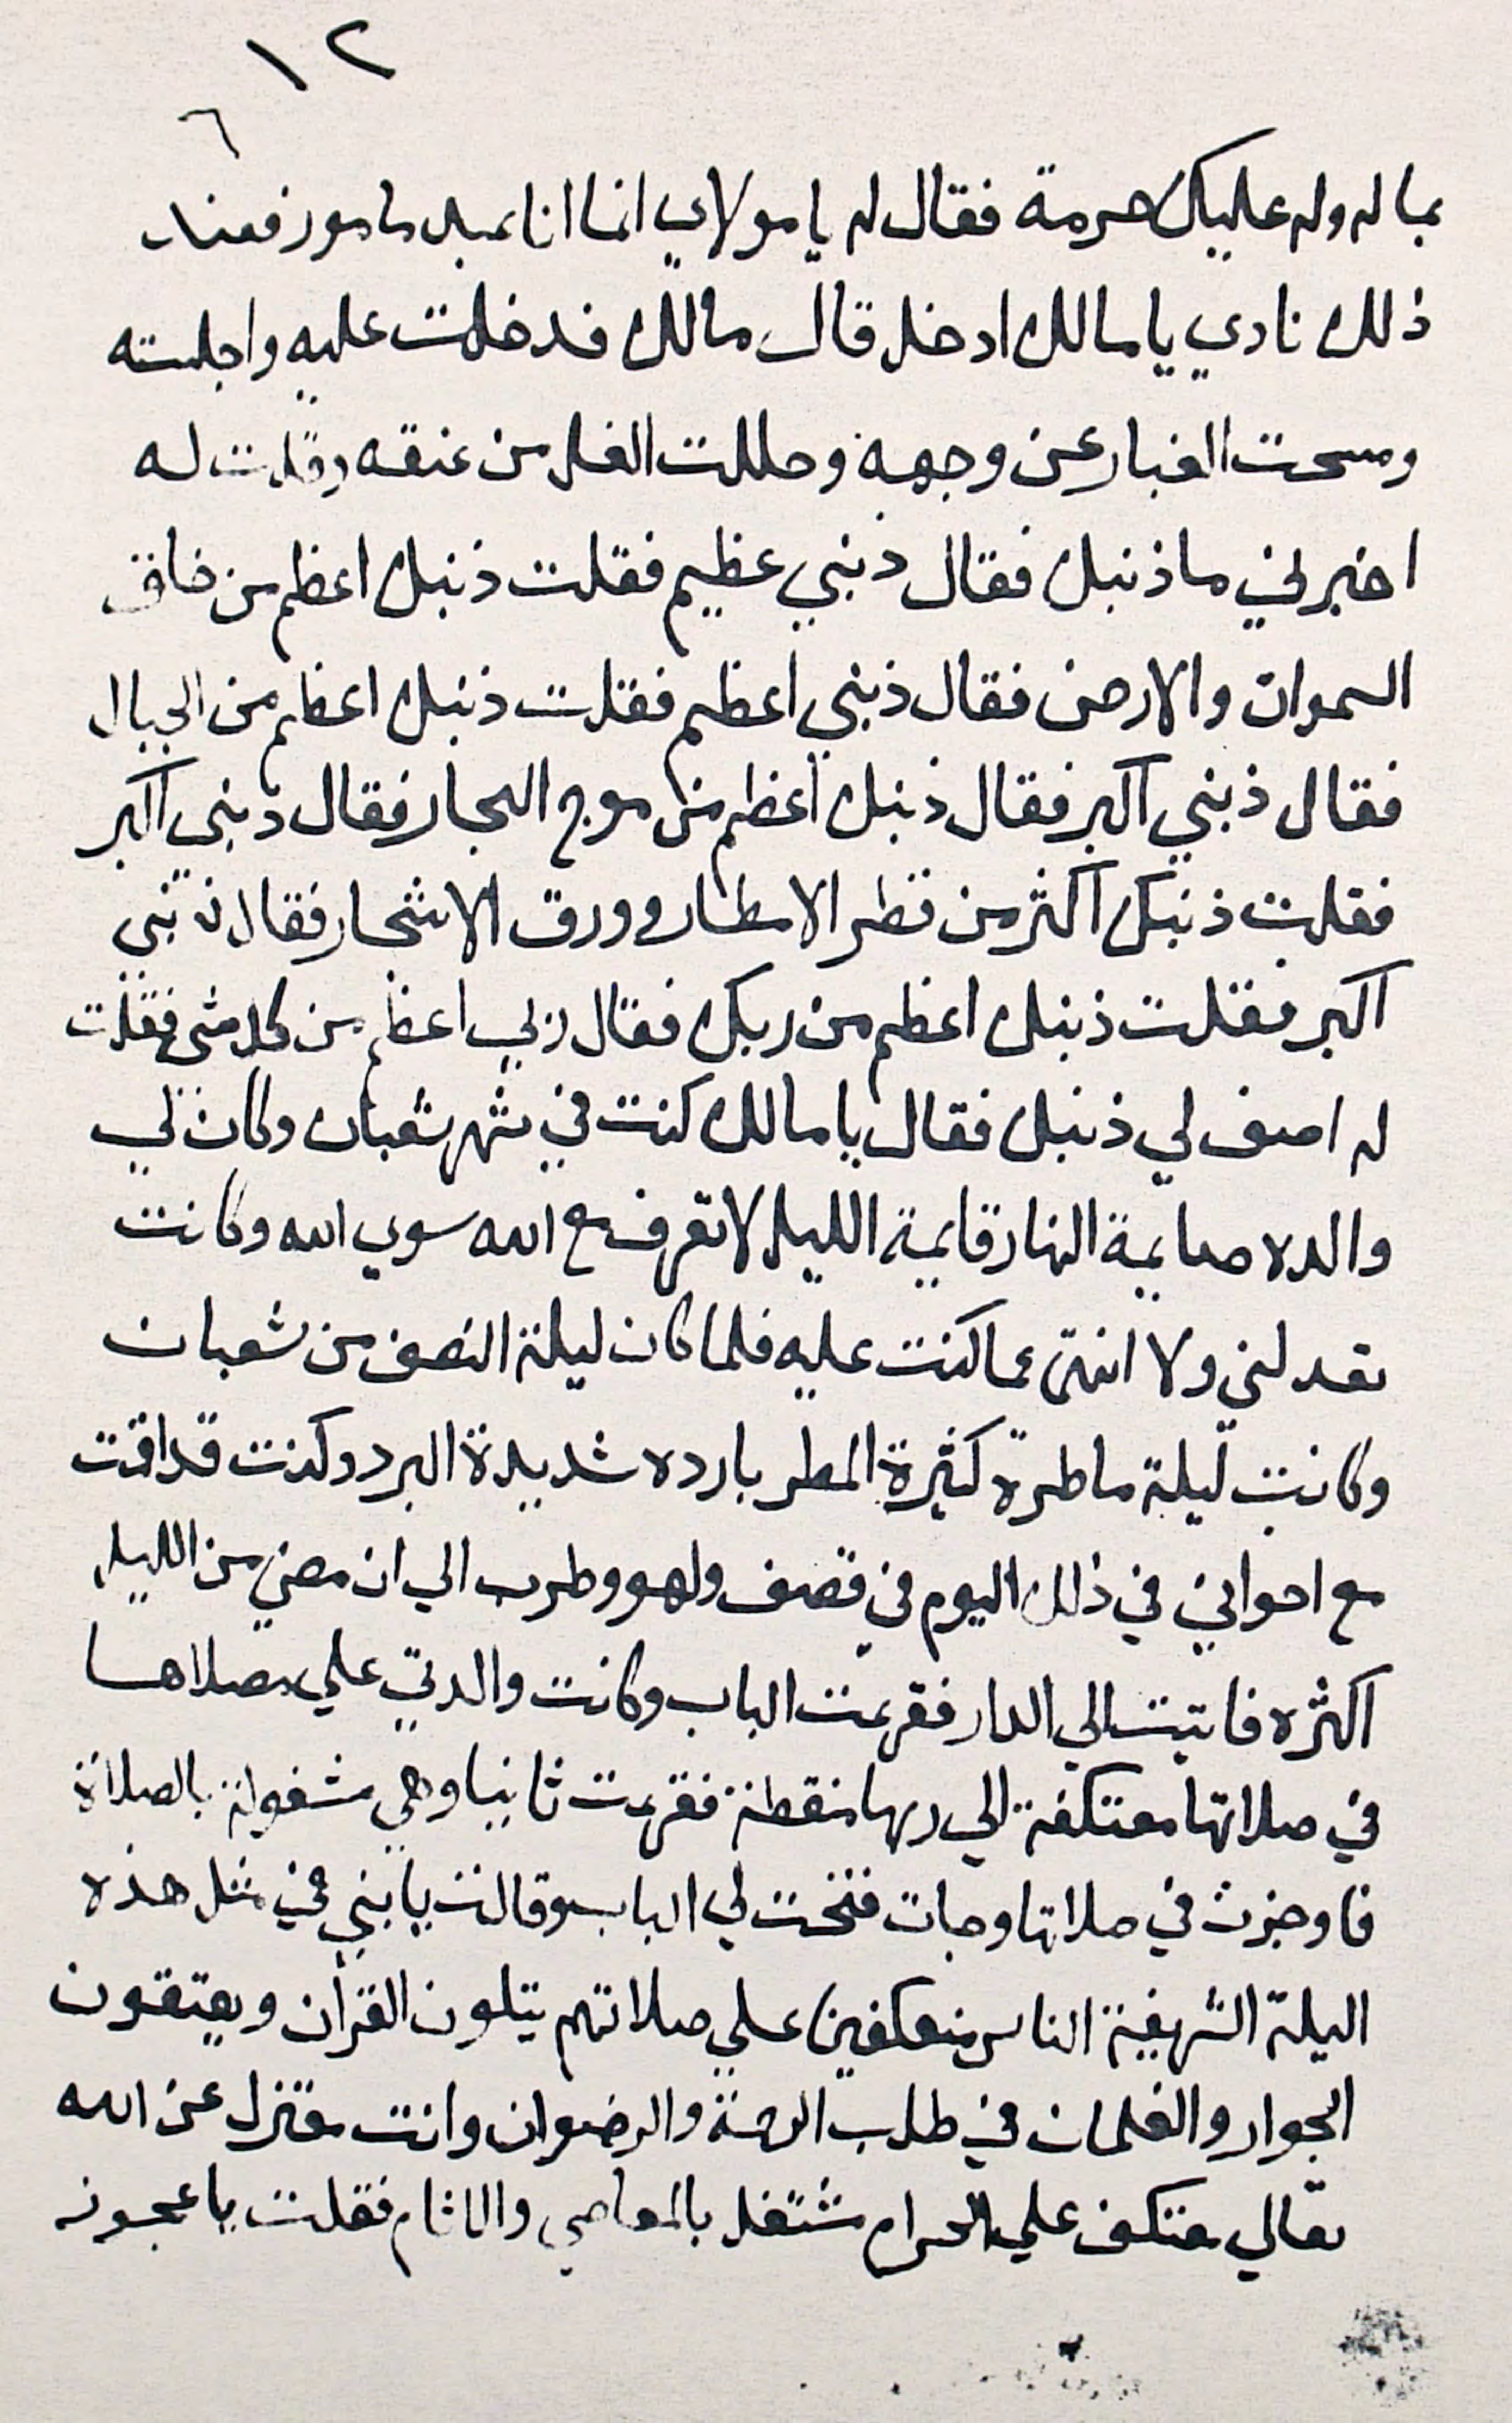 ١٢
٦
بماله وله عليك حرمة فقال له يا مولاي انما انا عبد مامور فعند
ذلك نادي يا مالك ادخل قال مالك فدخلت عليه واجلسته
ومسحت الغبار عن وجهه وحللت الغل من عنقه وقلت له
اخبرني ما ذنبك فقال ذنبي عظيم فقلت ذنبك اعظم من خلق
السموات والارض فقال ذنبي اعظم فقلت ذنبك اعظم من الجبال
فقال ذنبي اكبر فقال ذنبك اعظم من موج البحار فقال ذنبي اكبر
فقلت ذنبك اكثر من قطر الامطار وورق الاشجار فقال ذنبي
اكبر فقلت ذنبك اعظم من ربك فقال ربي اعظم من كل شي فقلت
له اصف لي ذنبك فقال يا مالك كنت في شهر شعبان وكان لي
والده صايمة النهار قايمة الليل لا تعرف مع الله سوي الله وكانت
تعدلني ولا انتهى عما كنت عليه فلما كان ليلة النصف من شعبان
وكانت ليلة ماطرة كثيرة المطر بارده شديدة البرد وكنت قد اقمت
مع اخواني في ذلك اليوم في قصف ولهو وطرب الي ان مضي من الليل
اكثره فاتيت الي الدار فقرعت الباب وكانت والدتي علي مصلاها
في صلاتها معتكفة الي ربها منقطة فقرعت ثانيا وهي مشغولة بالصلاة
فاوجزت في صلاتها وجات فتحت لي الباب وقالت يا بني في مثل هذه
اليلة الشريفة الناس منعكفين علي صلاتهم يتلون القران ويعتقون
الجوار والغلمان في طلب الرحمة والرضوان وانت معتزل عن الله
تعالي معتكف علي الحرام مشتغل بالمعاصي والاثام فقلت يا عجوز